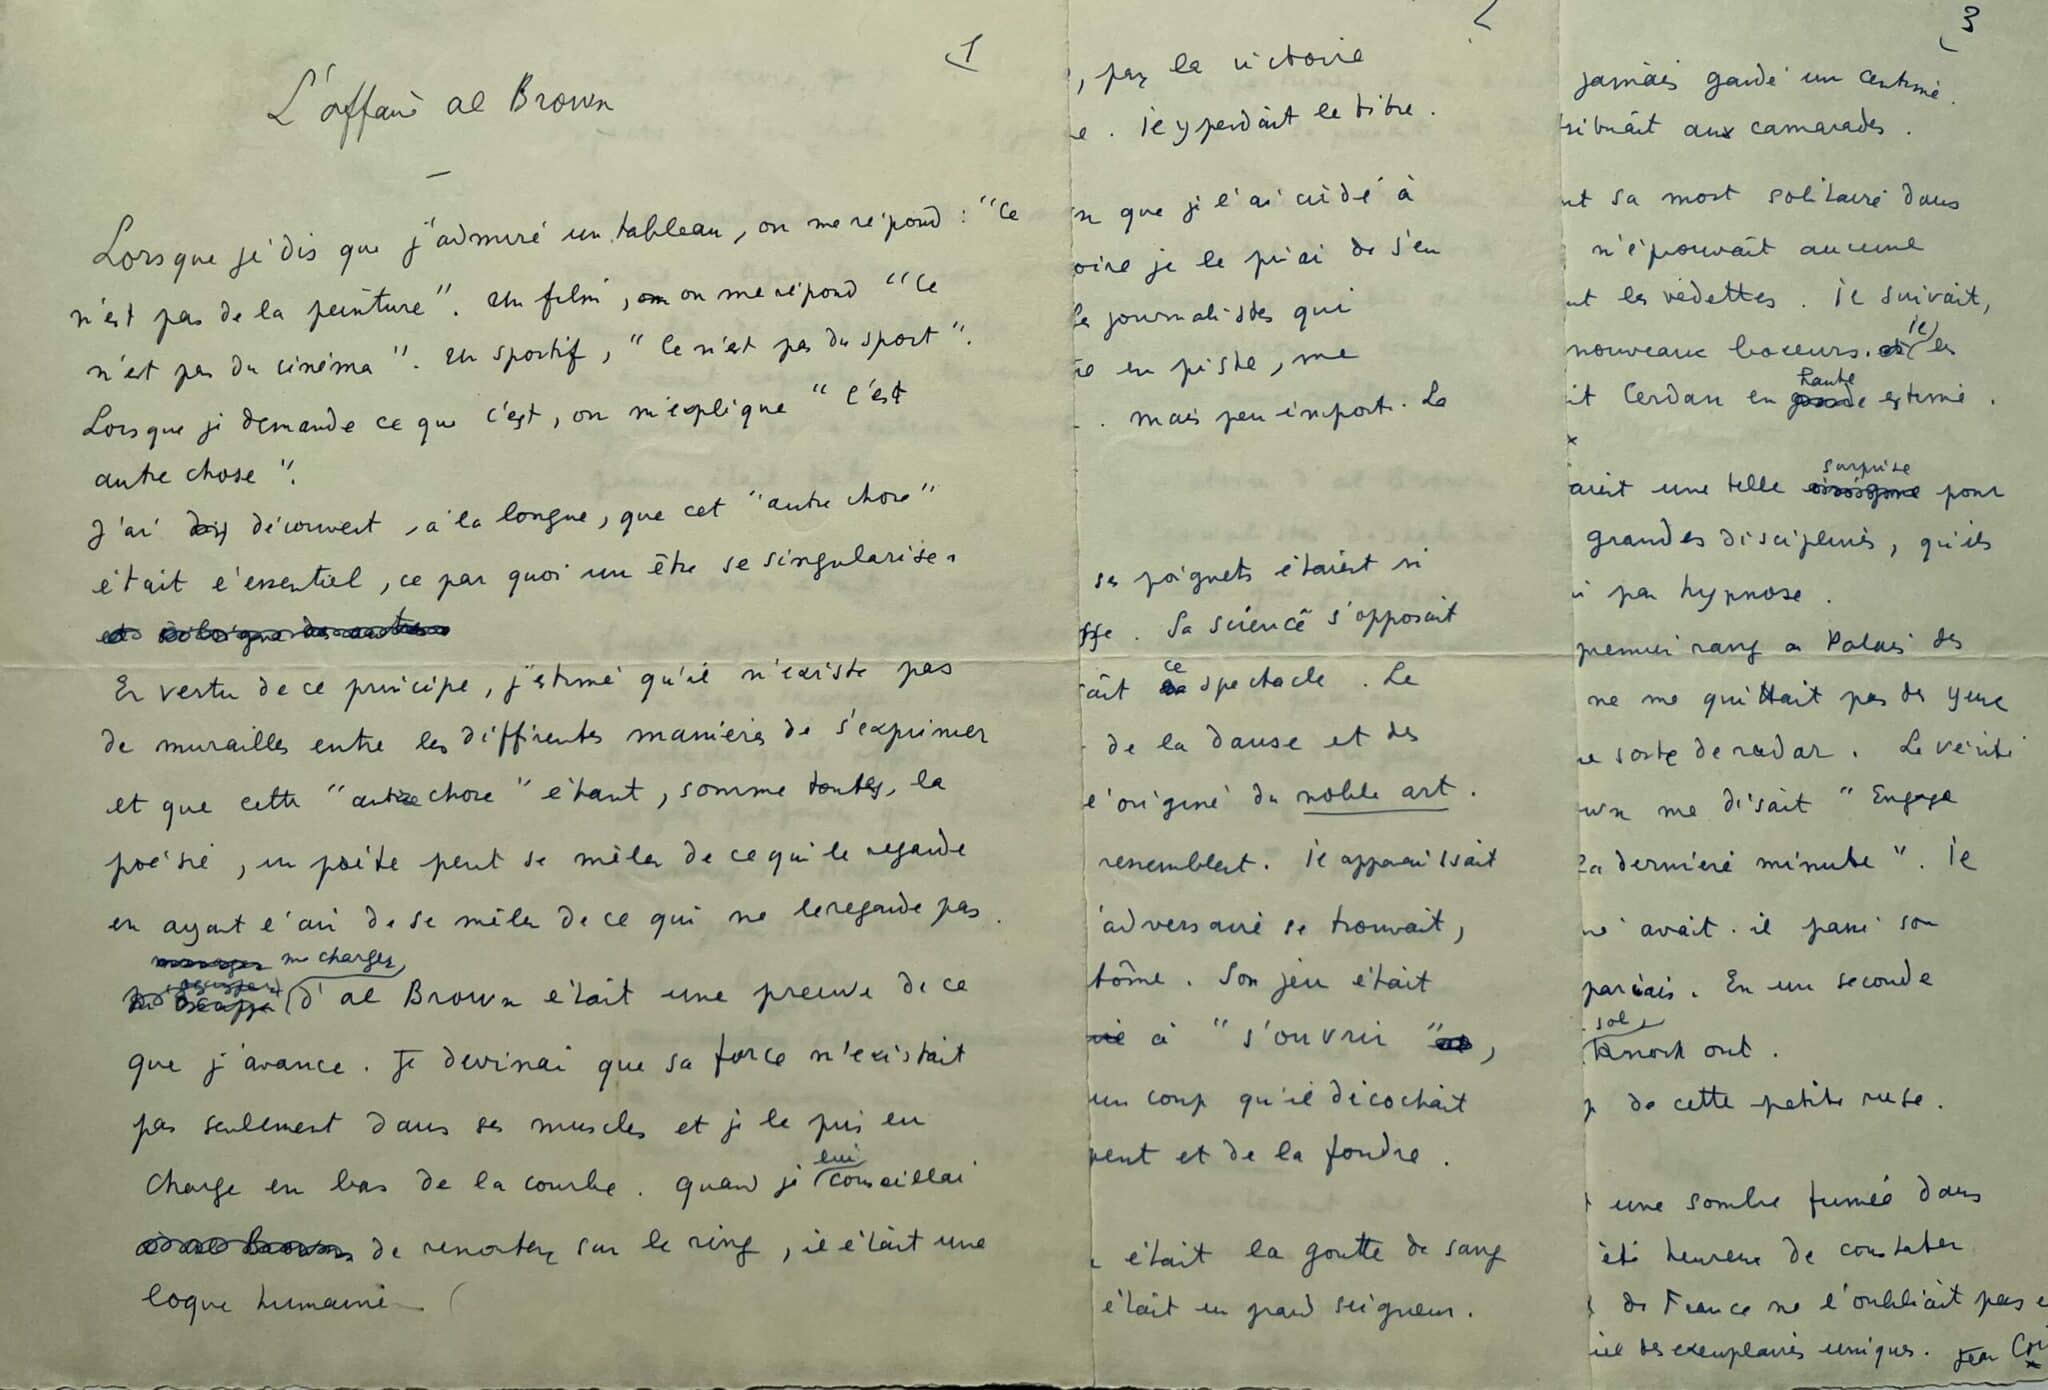 1
L'affaire al Brown
Lorsque je dis que j'admire un tableau, on me répond : "Ce
n'est pas de la peinture". Un film, on me répond "Ce
n'est pas du cinéma". Un sportif, "Ce n'est pas du sport".
Lorsque je demande ce que c'est, on m'explique "C'est
autre chose".
J'ai découvert, à la longue, que cet "autre chose"
était l'essentiel, ce par quoi un être se singularise.
En vertu de ce principe, j'estime qu'il n'existe pas
de murailles entre les différentes manières de s'exprimer
et que cette "autre chose" étant, somme toutes, la
poésie, un poète peut se mêler de ce qui le regarde
en ayant l'air de se mêler de ce qui ne le regarde pas.
me charger
d'al Brown était une preuve de ce
que j'avance. Je devinai que sa force n'existait
pas seulement dans ses muscles et je le pris en
charge en bas de la courbe. Quand je lui conseillai
de remonter sur le ring, il était une
loque humaine
2
, par la victoire
e. Il y perdait le titre.
n que je l'ai aidé à
oire je le priai de s'en
les journalistes qui
re en piste, me
. Mais peu importe. Le
ses poignets étaient si
ffe. Sa science s'opposait
ait ce spectacle. Le
de la danse et des
l'origine du noble art.
ressemblent. Il apparaissait
l'adversaire se trouvait,
tôme. Son jeu était
à "s'ouvrir",
un coup qu'il décochait
pent et de la foudre.
était la goutte de sang
était un grand seigneur.
3
jamais gardé un centime.
tribuait aux camarades.
nt sa mort solitaire dans
n'éprouvait aucune
nt les vedettes. Il suivait,
nouveaux boxeurs. Il les
it Cerdan en haute estime.
x
aient une telle surprise pour
grandes disciplines, qu'ils
i par hypnose.
premier rang au Palais des
ne me quittait pas des yeux
ne sorte de radar. La vérité
wn me disait "Engage
la dernière minute". Il
avait. il passe son
pariais. En un seconde
sol
Knock out.
de cette petite ruse.
une sombre fumée dans
été heureux de constater
de France ne l'oubliait pas e
des exemplaires uniques. Jean Co
x